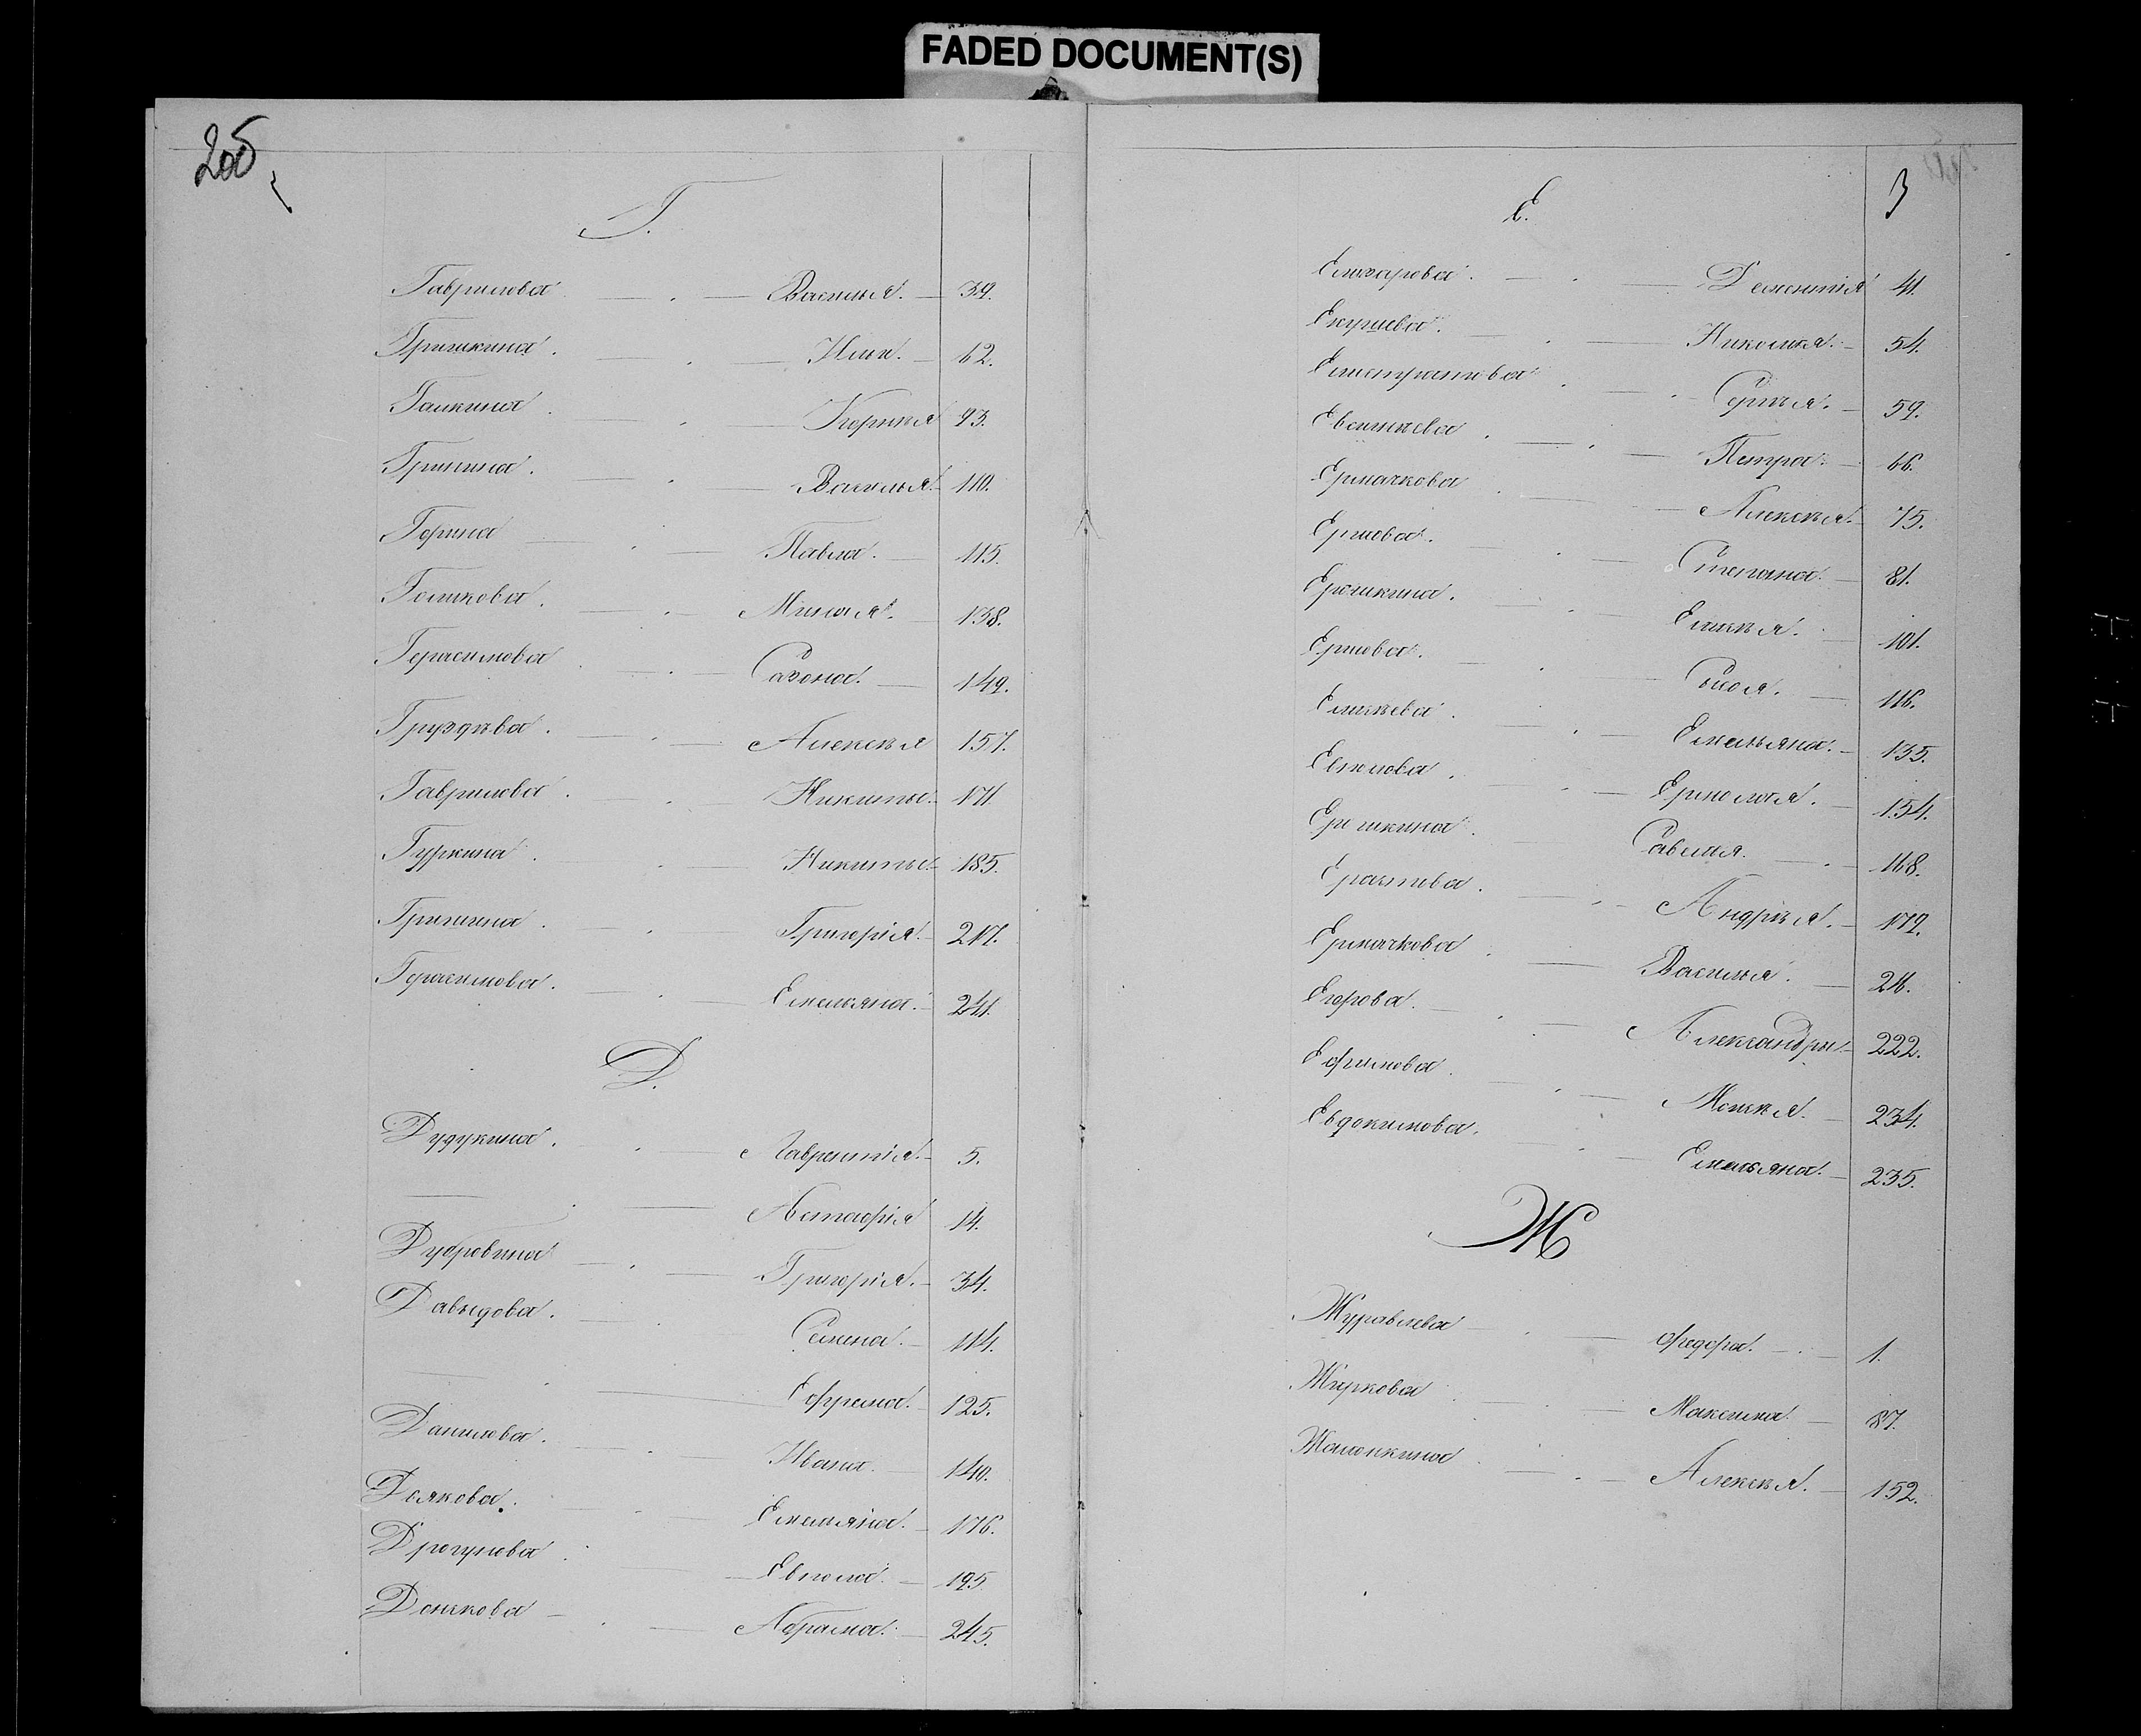 FADED DOCUMENT(S)
205
Г.
Гаврилова — Василья. — 39.
Гришкина. — Ильи. — 62.
Галкина — Игоринья 93.
Гришина. — Василья. — 110.
Горина — Павла. — 115.
Голикова. — Миная. — 138.
Герасимова — Сазона. — 149.
Груздѣва. — Алексѣя 157.
Гаврилова. — Никиты. 171.
Гуркина. — Никиты. — 185.
Гришина. — Григорія. — 217.
Герасимова. — Емельяна. — 241.
Д.
Дудукина. — Лаврентія. — 5.
— Астафія 14.
Дубровина — Григорія. — 34.
Давыдова. — Семена. — 114.
— Ефрема. 125.
Данилова. — Ивана. — 140.
Дьякова. — Емельяна. — 176.
Драгунова — Евпла. — 195.
Донскова — Абрама. — 245.
3
Е.
Елизарова. — Дементія 41.
Екушева. — Николая. — 54.
Елистратова — Сергѣя. — 59.
Евсишева. — Петра. — 66.
Ермачкова — Алексѣя. 75.
Ершова. — Степана. — 81.
Ерошкина. — Елисѣя. — 101.
Ершова. — Сысоя. — 116.
Елисѣева. — Емельяна. — 135.
Евплова. — Ермолая. — 154.
Ерошкина. — Савелия. — 168.
Ерастова. — Андрѣя. — 179.
Ермачкова. — Василья. — 211.
Егорова. — Александры. — 222.
Ефимова. — Моисѣя. — 234.
Евдокимова. — Емельяна. — 235.
Ж
Журавлева — Федора. — 1.
Жиркова — Максима. — 87.
Жалонкина — Алексѣя. — 152.